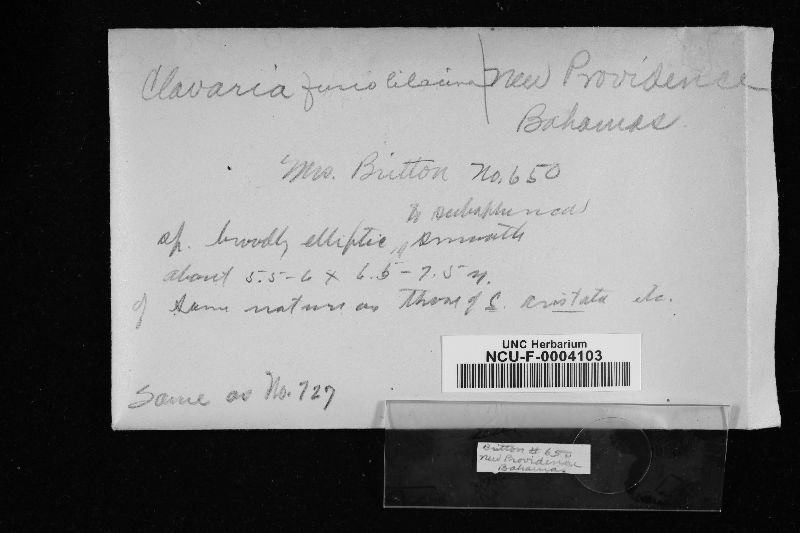 Clavaria fuscolilacina New Providence
Bahamas
Mrs. Britton No. 650
to subspherical
sp. broadly elliptic, smooth
about 5.5-6 x 6.5-7.5 µ.
of same nature as those of C. cristata etc.
UNC Herbarium
NCU-F-0004103
Same as No. 727
Britton # 650
New Providence
Bahamas